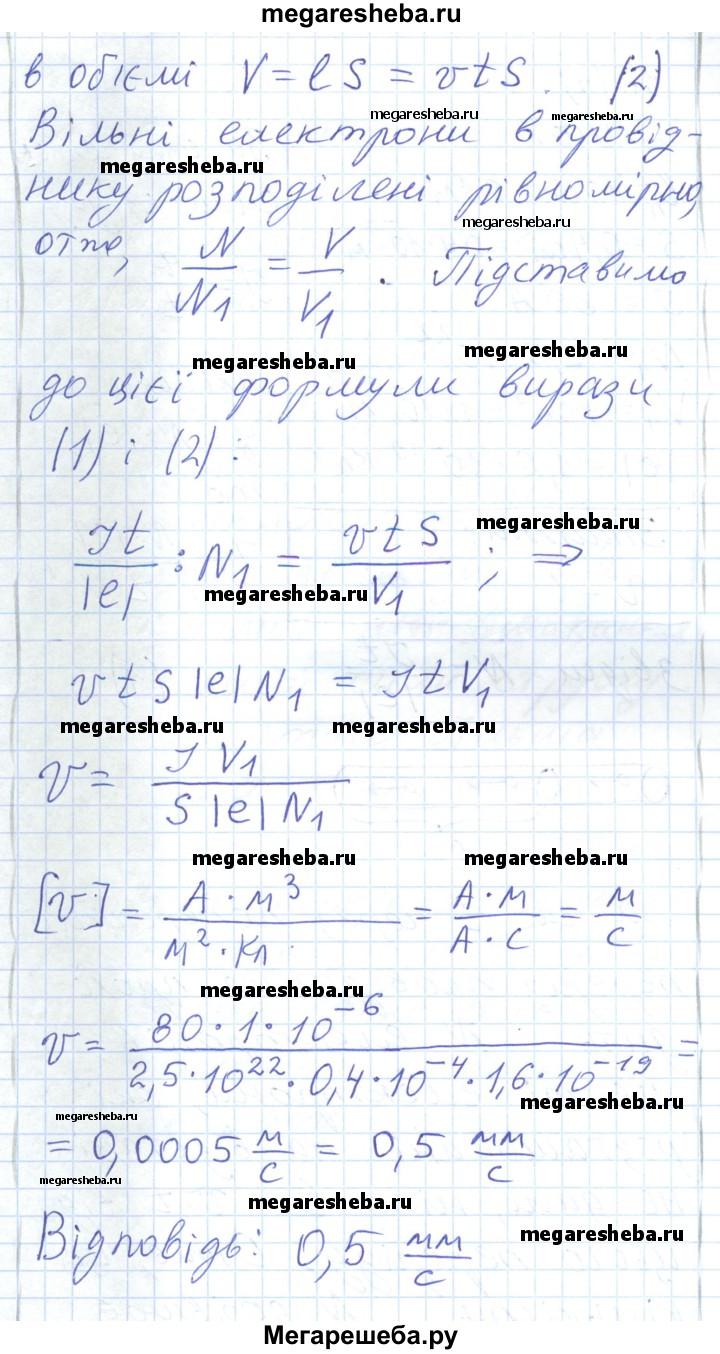 megaresheba.ru
в об'ємі V = l S = v t S . (2)
megaresheba.ru
megaresheba.ru
Вільні електрони в провід-
megaresheba.ru
нику розподілені рівномірно,
megaresheba.ru
отже, N/N₁ = V/V₁ . Підставимо
megaresheba.ru
megaresheba.ru
до цієї формули вирази
(1) і (2) :
megaresheba.ru
It/|e| : N₁ = v t S/V₁ ; ⇒
megaresheba.ru
v t S |e| N₁ = I t V₁
megaresheba.ru
megaresheba.ru
v = I V₁/S |e| N₁
megaresheba.ru
megaresheba.ru
[v] = А · м³/м² · Кл = А · м/А · с = м/с
megaresheba.ru
v = 80 · 1 · 10⁻⁶/2,5 · 10²² · 0,4 · 10⁻⁴ · 1,6 · 10⁻¹⁹ =
megaresheba.ru
megaresheba.ru
= 0,0005 м/с = 0,5 мм/с
megaresheba.ru
megaresheba.ru
megaresheba.ru
Відповідь: 0,5 мм/с
Мегарешеба.ру